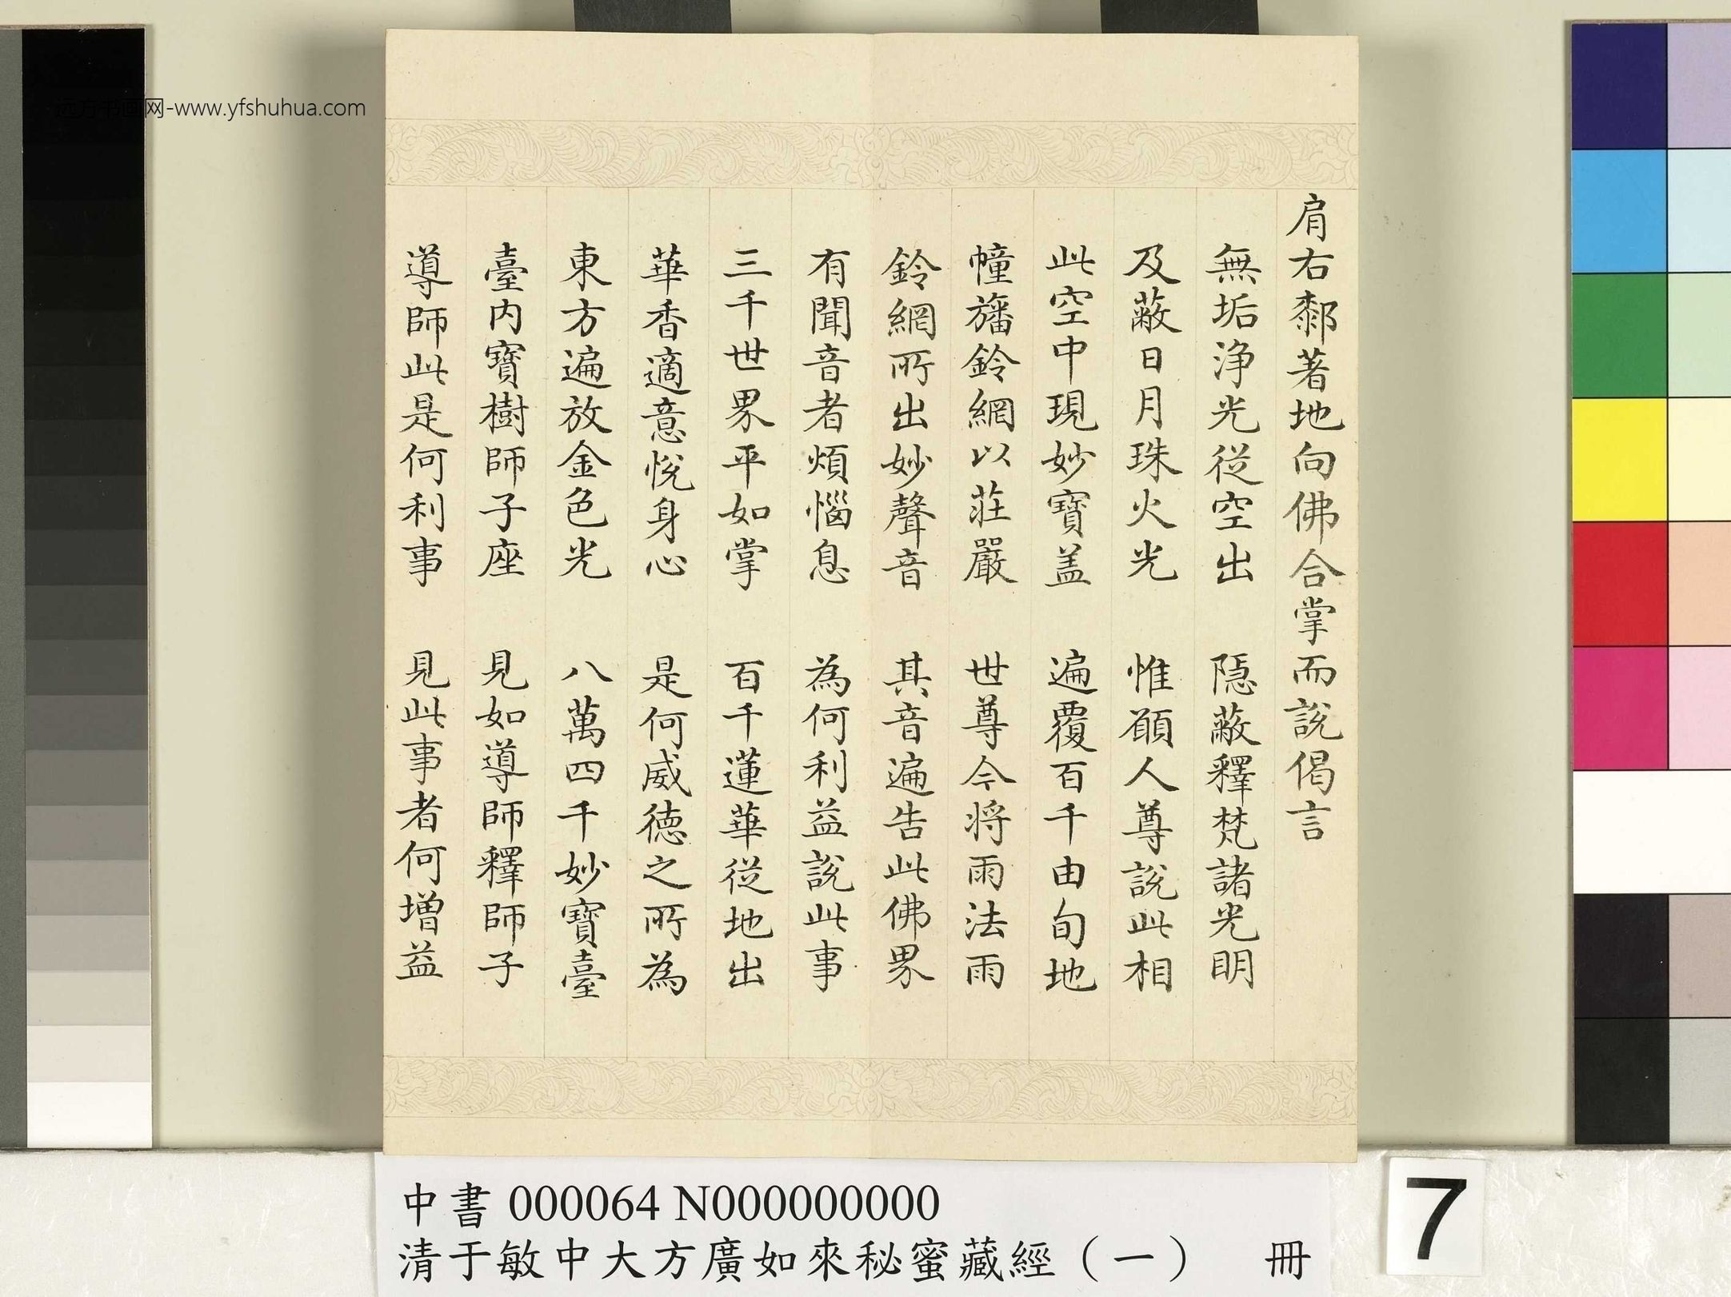 肩右䣛著地向佛合掌而說偈言
無垢淨光從空出　隱蔽釋梵諸光明
及蔽日月珠火光　惟願人尊說此相
此空中現妙寶盖　遍覆百千由旬地
幢旛鈴網以莊嚴　世尊今將雨法雨
鈴網所出妙聲音　其音遍告此佛界
有聞音者煩惱息　為何利益說此事
三千世界平如掌　百千蓮華從地出
華香適意悅身心　是何威德之所為
東方遍放金色光　八萬四千妙寶臺
臺內寶樹師子座　見如導師釋師子
導師此是何利事　見此事者何增益
中書 000064 N000000000
清于敏中大方廣如來秘蜜藏經（一）　冊
7
远方书画网-www.yfshuhua.com